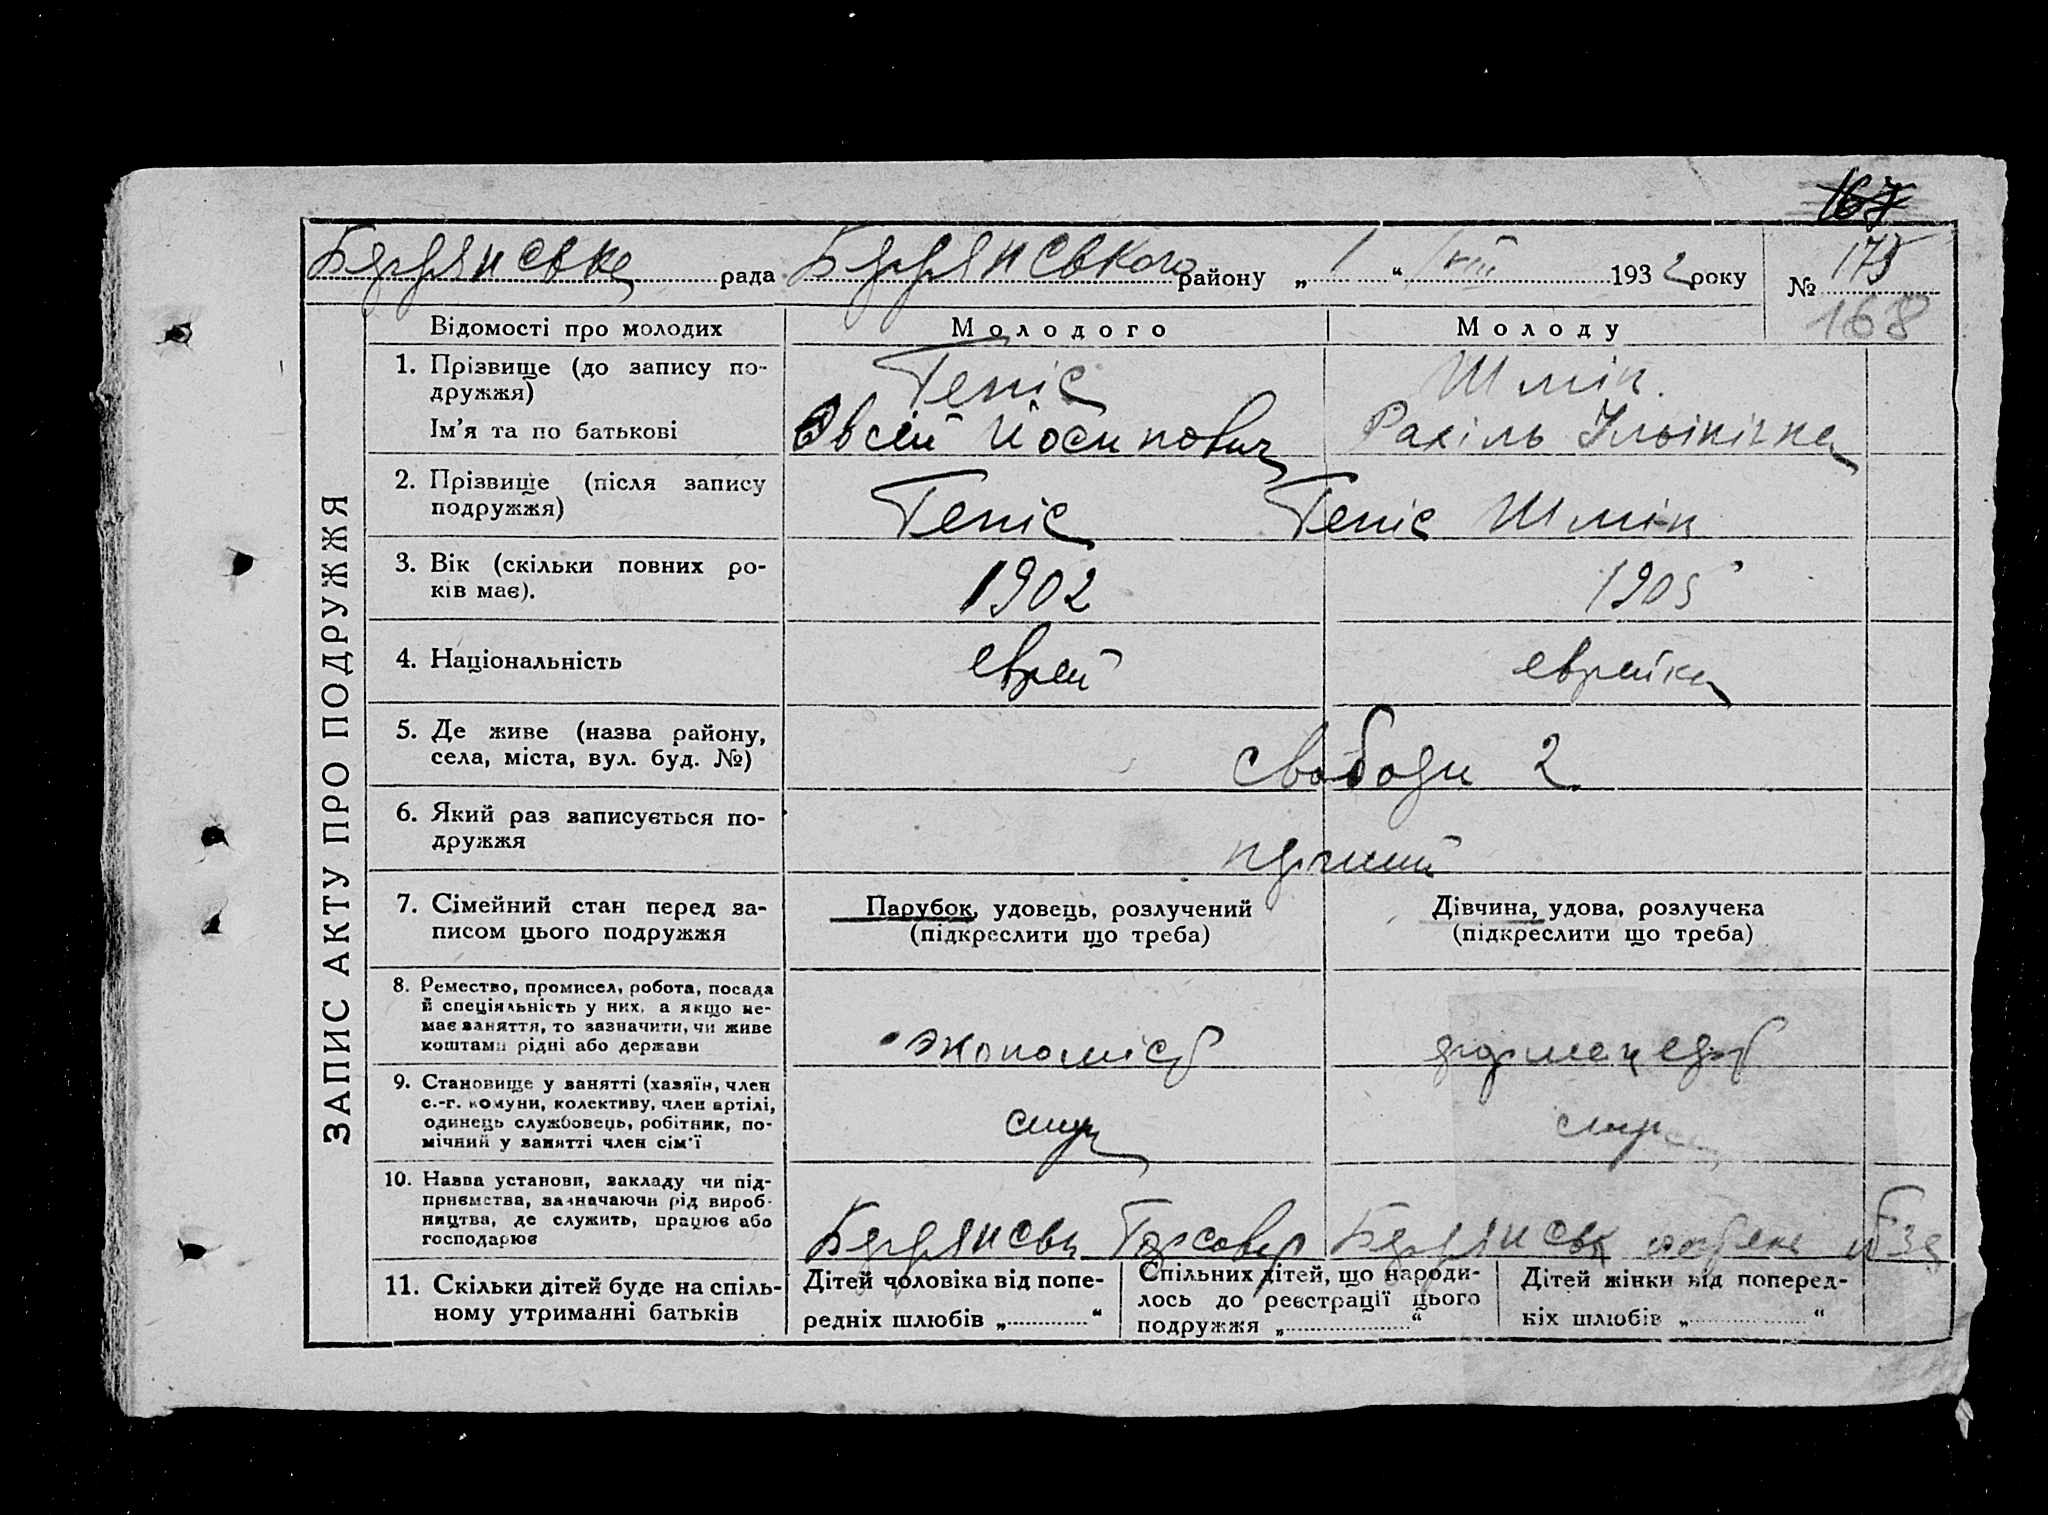 167
Бердянська рада Бердянського району „ 1 “ VIII 1932 року № 175
168
ЗАПИС АКТУ ПРО ПОДРУЖЖЯ
Відомості про молодих Молодого Молоду
1. Прізвище (до запису по-
дружжя)
Геніс Шмін
Ім'я та по батькові Овсій Йосипович Рахіль Ільінічна
2. Прізвище (після запису
подружжя)
Геніс Геніс Шмін
3. Вік (скільки повних ро-
ків має).
1902 1905
4. Національність еврей еврейка
5. Де живе (назва району,
села, міста, вул. буд. №)
Свободи 2
6. Який раз записується по-
дружжя
перший
7. Сімейний стан перед за-
писом цього подружжя
Парубок, удовець, розлучений
(підкреслити що треба)
Дівчина, удова, розлучека
(підкреслити що треба)
8. Ремество, промисел, робота, посада
й спеціяльність у них, а якщо не-
має заняття, то зазначити, чи живе
коштами рідні або держави
экономіст
9. Становище у занятті (хазяїн, член
с.-г. комуни, колективу, член артілі,
одинець службовець, робітник, по-
мічний у занятті член сім'ї
служ
10. Назва установи, закладу чи під-
приємства, зазначаючи рід вироб-
ництва, де служить, працює або
господарює
Бердянськ Бердянськ
11. Скільки дітей буде на спіль-
ному утриманні батьків
Дітей чоловіка від попе-
редніх шлюбів „ “
Спільних дітей, що народи-
лось до реєстрації цього
подружжя „ “
Дітей жінки від поперед-
ніх шлюбів „ “